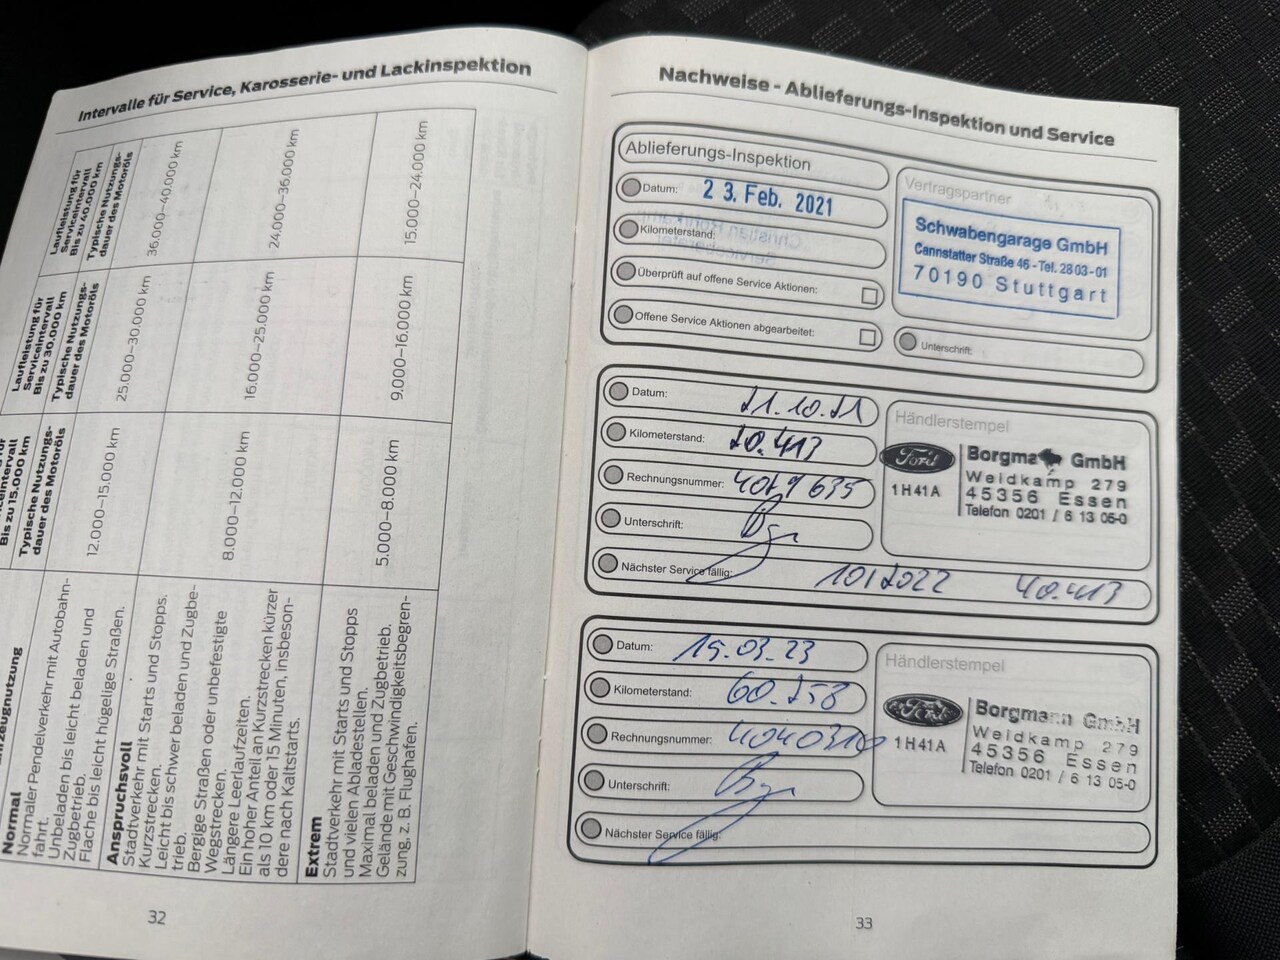 Intervalle für Service, Karosserie- und Lackinspektion
Laufleistung für
Serviceintervall
Bis zu 40.000 km
Typische Nutzungs-
dauer des Motoröls
36.000–40.000 km
24.000–36.000 km
15.000–24.000 km
Laufleistung für
Serviceintervall
Bis zu 30.000 km
Typische Nutzungs-
dauer des Motoröls
25.000–30.000 km
16.000–25.000 km
9.000–16.000 km
Bis zu 15.000 km
Typische Nutzungs-
dauer des Motoröls
12.000–15.000 km
8.000–12.000 km
5.000–8.000 km
Normal
Normaler Pendelverkehr mit Autobahn-
fahrt.
Unbeladen bis leicht beladen und
Zugbetrieb.
Flache bis leicht hügelige Straßen.
Anspruchsvoll
Stadtverkehr mit Starts und Stopps.
Kurzstrecken.
Leicht bis schwer beladen und Zugbe-
trieb.
Bergige Straßen oder unbefestigte
Wegstrecken.
Längere Leerlaufzeiten.
Ein hoher Anteil an Kurzstrecken kürzer
als 10 km oder 15 Minuten, insbeson-
dere nach Kaltstarts.
Extrem
Stadtverkehr mit Starts und Stopps
und vielen Abladestellen.
Maximal beladen und Zugbetrieb.
Gelände mit Geschwindigkeitsbegren-
zung, z. B. Flughafen.
32
Nachweise - Ablieferungs-Inspektion und Service
Ablieferungs-Inspektion
Datum: 23. Feb. 2021
Kilometerstand:
Überprüft auf offene Service Aktionen:
Offene Service Aktionen abgearbeitet:
Vertragspartner
Schwabengarage GmbH
Cannstatter Straße 46 - Tel. 28 03-01
70190 Stuttgart
Unterschrift:
Datum: 21.10.21
Kilometerstand: 20.413
Rechnungsnummer:
Unterschrift:
Nächster Service fällig: 10/2022 40.413
Händlerstempel
Ford
1H41A
Borgmann GmbH
Weidkamp 279
45356 Essen
Telefon 0201 / 6 13 05-0
Datum: 15.03.23
Kilometerstand: 60.258
Rechnungsnummer:
Unterschrift:
Nächster Service fällig:
Händlerstempel
Ford
1H41A
Borgmann GmbH
Weidkamp 279
45356 Essen
Telefon 0201 / 6 13 05-0
33